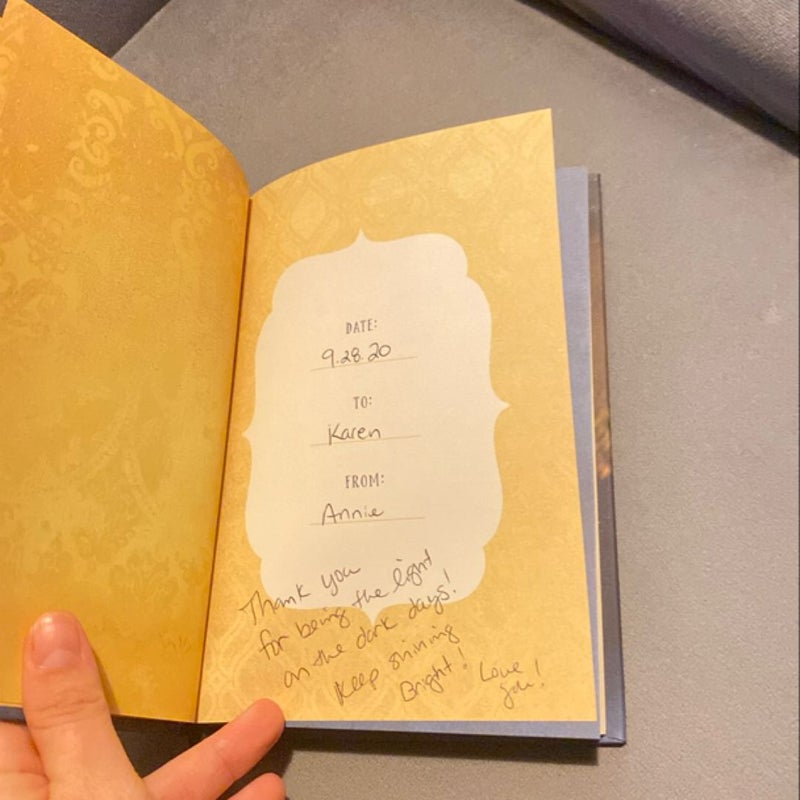 DATE:
9.28.20
TO:
Karen
FROM:
Annie
Thank you
for being the light
on the dark days!
Keep shining
Bright! Love
you!